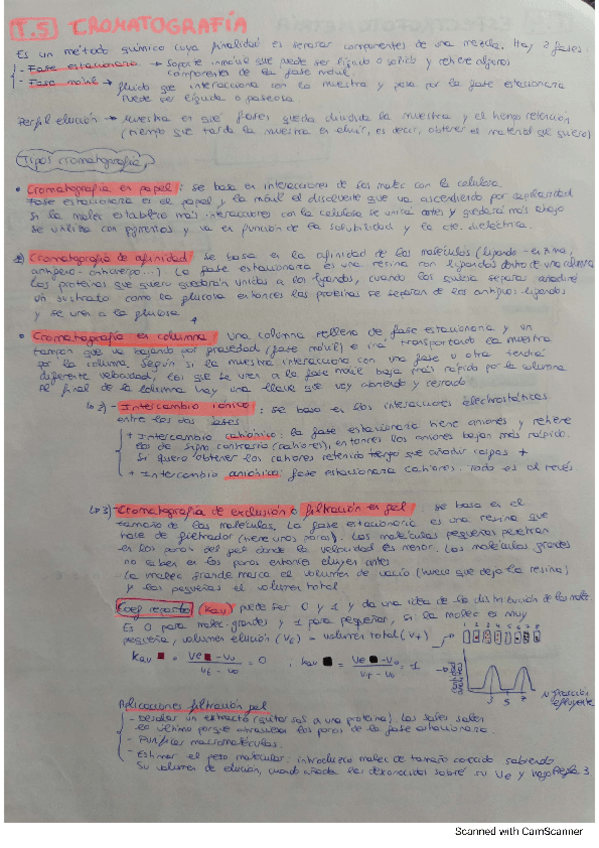 T.5 CROMATOGRAFÍA
Es un método químico cuya finalidad es separar componentes de una mezcla. Hay 2 fases:
- Fase estacionaria → Soporte inmóvil que puede ser líquido o sólido y retiene algunos
componentes de la fase móvil
- Fase móvil → fluido que interacciona con la muestra y pasa por la fase estacionaria
Puede ser líquida o gaseosa
Perfil elución → Muestra en qué fases queda dividida la muestra y el tiempo retención
(tiempo que tarda la muestra en eluir, es decir, obtener el material que quiero)
Tipos cromatografía
• Cromatografía en papel: se basa en interacciones de las molec con la celulosa.
Fase estacionaria es el papel y la móvil el disolvente que va ascendiendo por capilaridad
Si la molec establece más interacciones con la celulosa se unirá antes y quedará más abajo
Se utiliza con pigmentos y va en función de la solubilidad y la cte. dieléctrica.
Cromatografía de afinidad: se basa en la afinidad de las moléculas (ligando-enzima,
antígeno-anticuerpo...) La fase estacionaria es una resina con ligandos dentro de una columna
Las proteínas que quiero quedarán unidas a los ligandos, cuando las quiera separar añadiré
un sustrato como la glucosa entonces las proteínas se separan de los antiguos ligandos
y se unen a la glucosa
• Cromatografía en columna: Una columna rellena de fase estacionaria y un
tampón que va bajando por gravedad (fase móvil) e irá transportando la muestra
por la columna. Según si la muestra interacciona con una fase u otra tendrá
diferente velocidad, los que se unen a la fase móvil bajan más rápido por la columna
Al final de la columna hay una llave que voy abriendo y cerrando
2)- Intercambio iónico: se basa en las interacciones electrostáticas
entre las dos fases
+ Intercambio catiónico: la fase estacionaria tiene aniones y retiene
los de signo contrario (cationes), entonces los aniones bajan más rápido.
Si quiero obtener los cationes retenidos tengo que añadir cargas +
+ Intercambio aniónico: fase estacionaria cationes. Todo es al revés
3)- Cromatografía de exclusión o filtración en gel: se basa en el
tamaño de las moléculas. La fase estacionaria es una resina que
hace de filtrador (tiene unos poros). Las moléculas pequeñas penetran
en los poros del gel donde la velocidad es menor. Las moléculas grandes
no caben en los poros entonces eluyen antes
La molec grande marca el volumen de vacío (hueco que deja la resina)
y las pequeñas el volumen total
Coef reparto (Kav) puede ser 0 y 1 y da una idea de la distribución de las molec.
Es 0 para molec. grandes y 1 para pequeñas, si la molec es muy
pequeña, volumen elución (Ve) = volumen total (Vt)
1 2 3 4 5 6 7 8
Kav = Ve - Vo / Vt - Vo = 0 , Kav = Ve - Vo / Vt - Vo = 1
3 5 7
Nº fracción
efluyente
Aplicaciones filtración gel
- Desalar un extracto (quitar sales a una proteína). Las sales salen
lo último porque atraviesan los poros de la fase estacionaria
- Purificar macromoléculas.
- Estimar el peso molecular: introduzco molec de tamaño conocido sabiendo
su volumen de elución, cuando añada las desconocidas sabré su Ve y hago Regla 3
Scanned with CamScanner